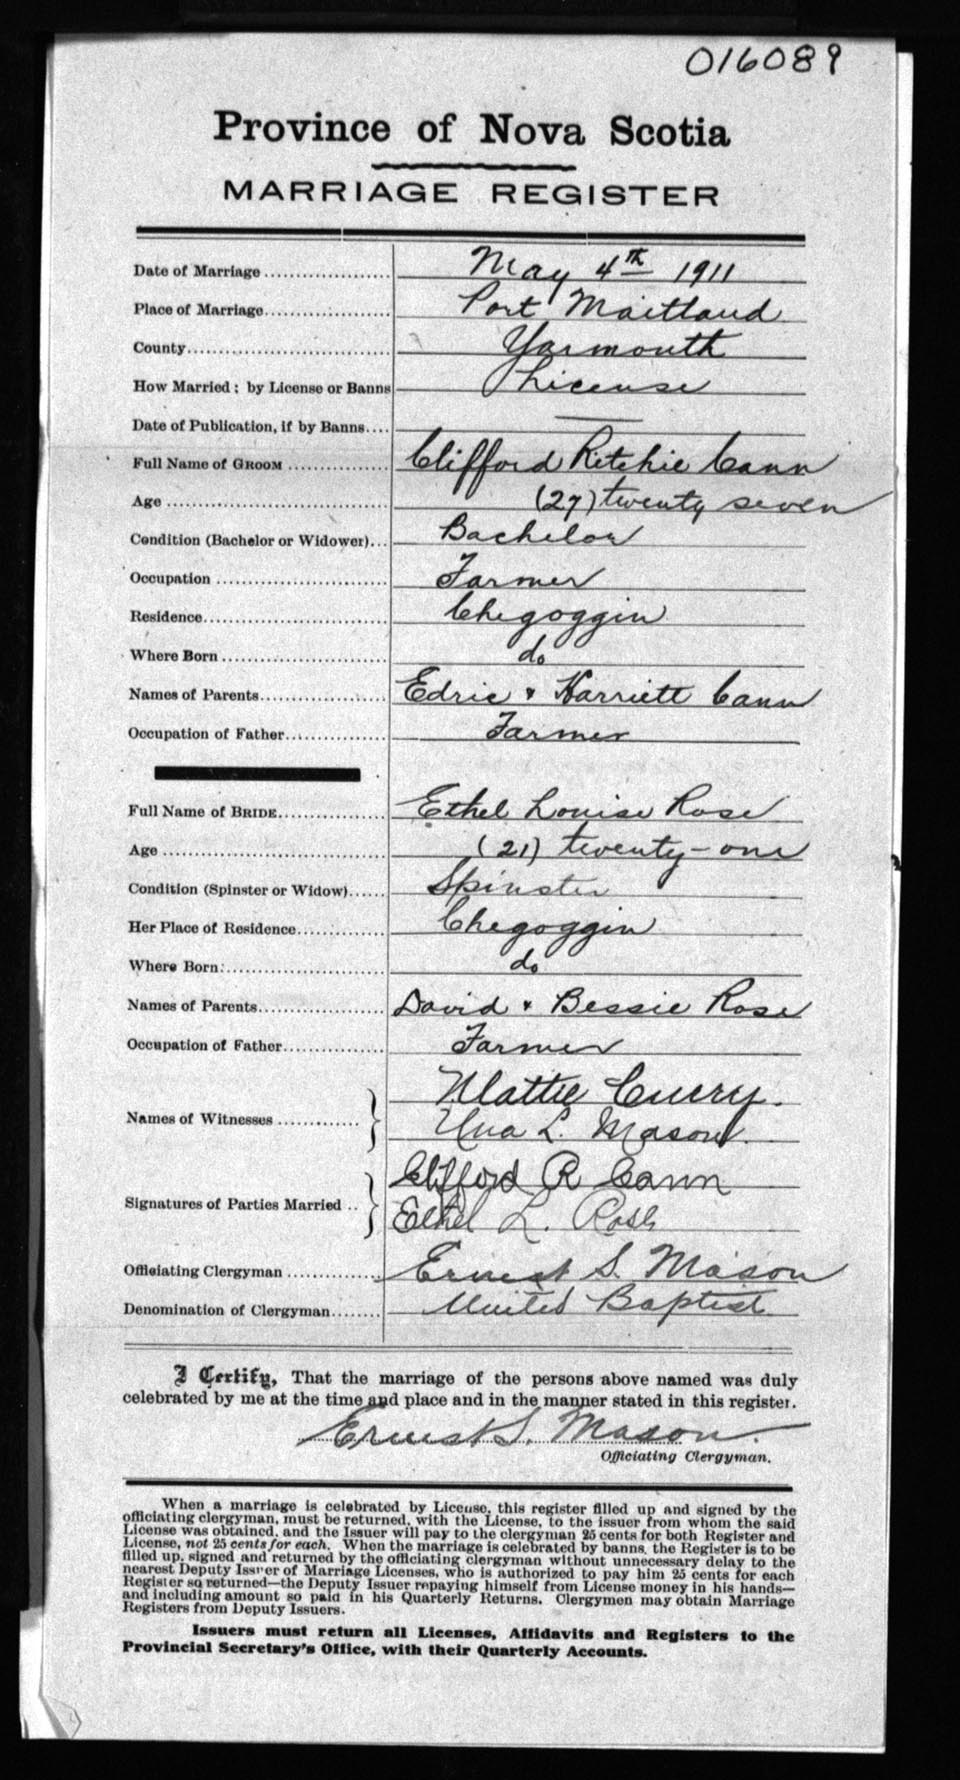 016089
Province of Nova Scotia
MARRIAGE REGISTER
Date of Marriage .................... May 4th 1911
Place of Marriage.................... Port Maitland
County.................... Yarmouth
How Married; by License or Banns License
Date of Publication, if by Banns.... —
Full Name of GROOM .................... Clifford Ritchie Cann
Age .................... (27) twenty seven
Condition (Bachelor or Widower)... Bachelor
Occupation .................... Farmer
Residence.................... Chegoggin
Where Born .................... do
Names of Parents.................... Edric & Harriett Cann
Occupation of Father.................... Farmer
Full Name of BRIDE.................... Ethel Louise Rose
Age .................... (21) twenty-one
Condition (Spinster or Widow)...... Spinster
Her Place of Residence.............. Chegoggin
Where Born.................... do
Names of Parents.................... David & Bessie Rose
Occupation of Father................ Farmer
Names of Witnesses .............. } Mattie Curry.
Una L. Mason.
Signatures of Parties Married .. } Clifford R Cann
Ethel L. Rose
Officiating Clergyman .............. Ernest S. Mason
Denomination of Clergyman........ United Baptist
I Certify, That the marriage of the persons above named was duly
celebrated by me at the time and place and in the manner stated in this register.
Ernest S. Mason.
Officiating Clergyman.
When a marriage is celebrated by License, this register filled up and signed by the
officiating clergyman, must be returned, with the License, to the issuer from whom the said
License was obtained, and the Issuer will pay to the clergyman 25 cents for both Register and
License, not 25 cents for each. When the marriage is celebrated by banns, the Register is to be
filled up, signed and returned by the officiating clergyman without unnecessary delay to the
nearest Deputy Issuer of Marriage Licenses, who is authorized to pay him 25 cents for each
Register so returned—the Deputy Issuer repaying himself from License money in his hands—
and including amount so paid in his Quarterly Returns. Clergymen may obtain Marriage
Registers from Deputy Issuers.
Issuers must return all Licenses, Affidavits and Registers to the
Provincial Secretary's Office, with their Quarterly Accounts.